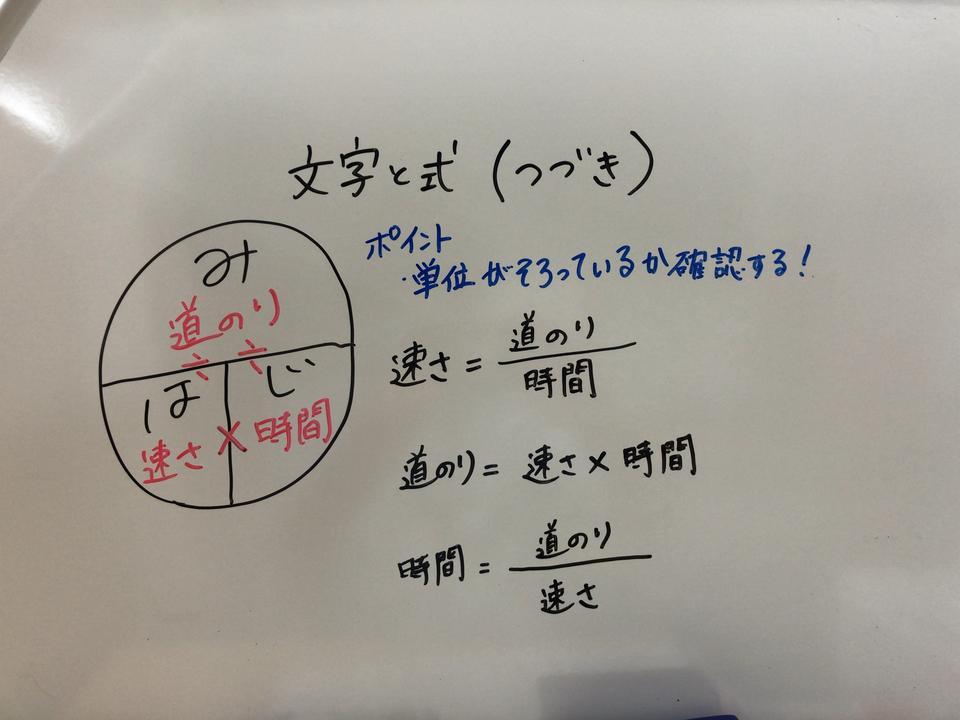 文字と式(つづき)
ポイント
・単位がそろっているか確認する!
み
道のり
÷ ÷
は じ
速さ×時間
速さ=道のり/時間
道のり=速さ×時間
時間=道のり/速さ